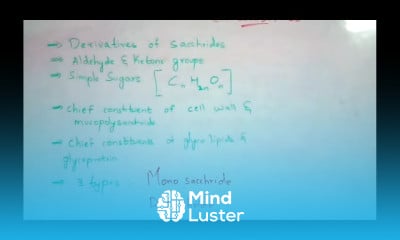 → Derivatives of sacchrides
→ Aldehyde & Ketone groups
→ Simple Sugars [ CnH2nOn ]
→ chief constituent of cell wall &
mucopolysaccharide
→ chief constituents of glyco lipids &
glycoprotein
→ 3 types Mono sacchride
Mind
Luster